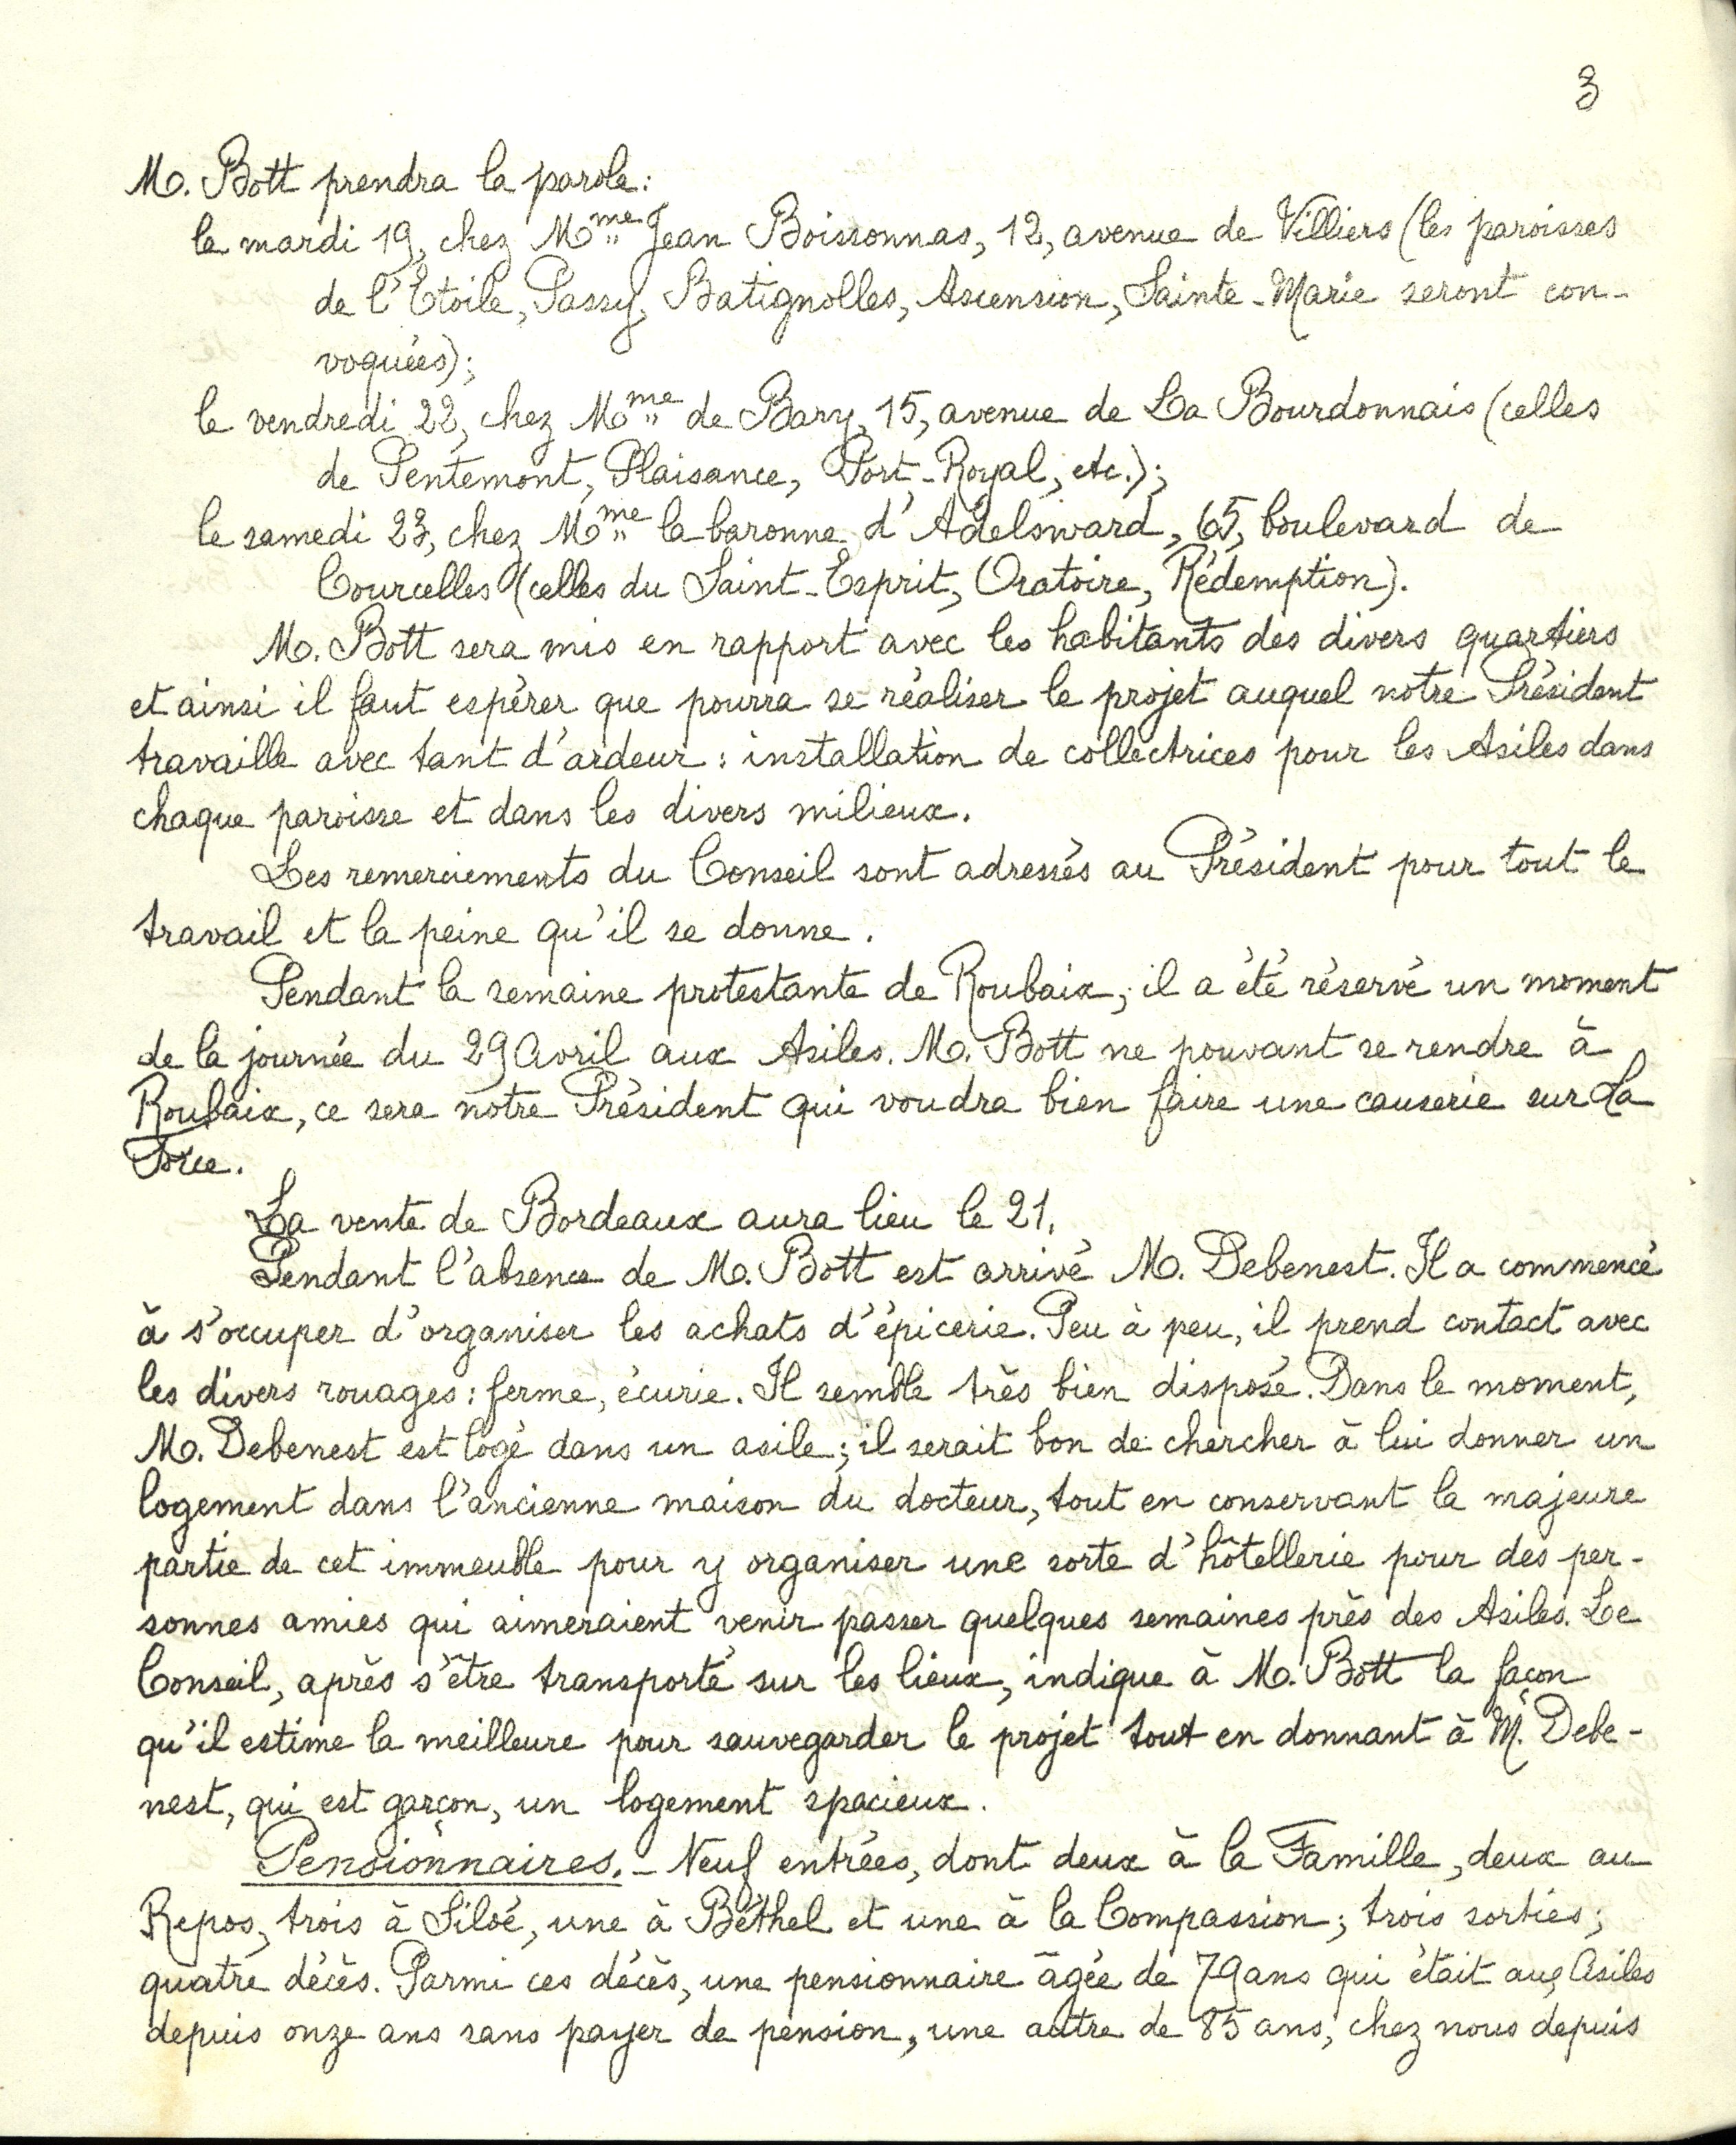 3
M. Bott prendra la parole:
le mardi 19, chez Mme Jean Boissonnas, 12, avenue de Villiers (les paroisses
de l'Etoile, Passy, Batignolles, Ascension, Sainte-Marie seront con-
voquées);
le vendredi 22, chez Mme de Bary, 15, avenue de La Bourdonnais (celles
de Pentemont, Plaisance, Port-Royal, etc.);
le samedi 23, chez Mme la baronne d'Adelsward, 65, boulevard de
Courcelles (celles du Saint-Esprit, Oratoire, Rédemption).
M. Bott sera mis en rapport avec les habitants des divers quartiers
et ainsi il faut espérer que pourra se réaliser le projet auquel notre Président
travaille avec tant d'ardeur : installation de collectrices pour les Asiles dans
chaque paroisse et dans les divers milieux.
Les remerciements du Conseil sont adressés au Président pour tout le
travail et la peine qu'il se donne.
Pendant la semaine protestante de Roubaix, il a été réservé un moment
de la journée du 29 Avril aux Asiles. M. Bott ne pouvant se rendre à
Roubaix, ce sera notre Président qui voudra bien faire une causerie sur La
Force.
La vente de Bordeaux aura lieu le 21.
Pendant l'absence de M. Bott est arrivé M. Debenest. Il a commencé
à s'occuper d'organiser les achats d'épicerie. Peu à peu, il prend contact avec
les divers rouages : ferme, écurie. Il semble très bien disposé. Dans le moment,
M. Debenest est logé dans un asile; il serait bon de chercher à lui donner un
logement dans l'ancienne maison du docteur, tout en conservant la majeure
partie de cet immeuble pour y organiser une sorte d'hôtellerie pour des per-
sonnes amies qui aimeraient venir passer quelques semaines près des Asiles. Le
Conseil, après s'être transporté sur les lieux, indique à M. Bott la façon
qu'il estime la meilleure pour sauvegarder le projet tout en donnant à M. Debe-
nest, qui est garçon, un logement spacieux.
Pensionnaires. - Neuf entrées, dont deux à la Famille, deux au
Repos, trois à Siloé, une à Béthel et une à la Compassion; trois sorties;
quatre décès. Parmi ces décès, une pensionnaire âgée de 79 ans qui était aux Asiles
depuis onze ans sans payer de pension, une autre de 85 ans, chez nous depuis